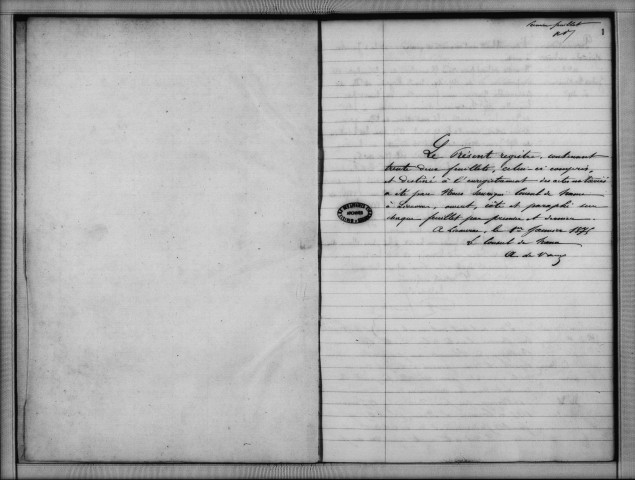 Premier feuillet
1
Le Présent registre, contenant
trente deux feuillets, celui-ci compris,
et destiné à l'enregistrement des actes
a été par Nous Consul de France
à ouvert, coté et paraphé sur
chaque feuillet par premier et dernier.
A le 1er Janvier 1876
Le Consul de France
A de
ARCHIVES